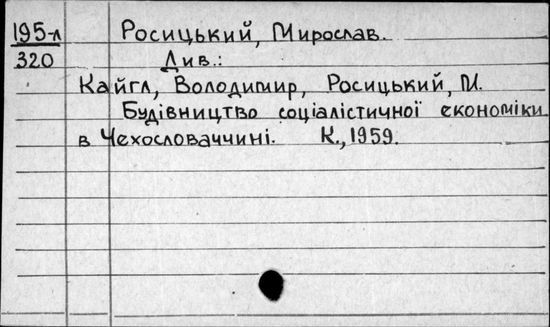 195-л Росицький, Мирослав.
320 Див.:
Кайгл, Володимир, Росицький, М.
Будівництво соціалістичної економіки
в Чехословаччині. К., 1959.